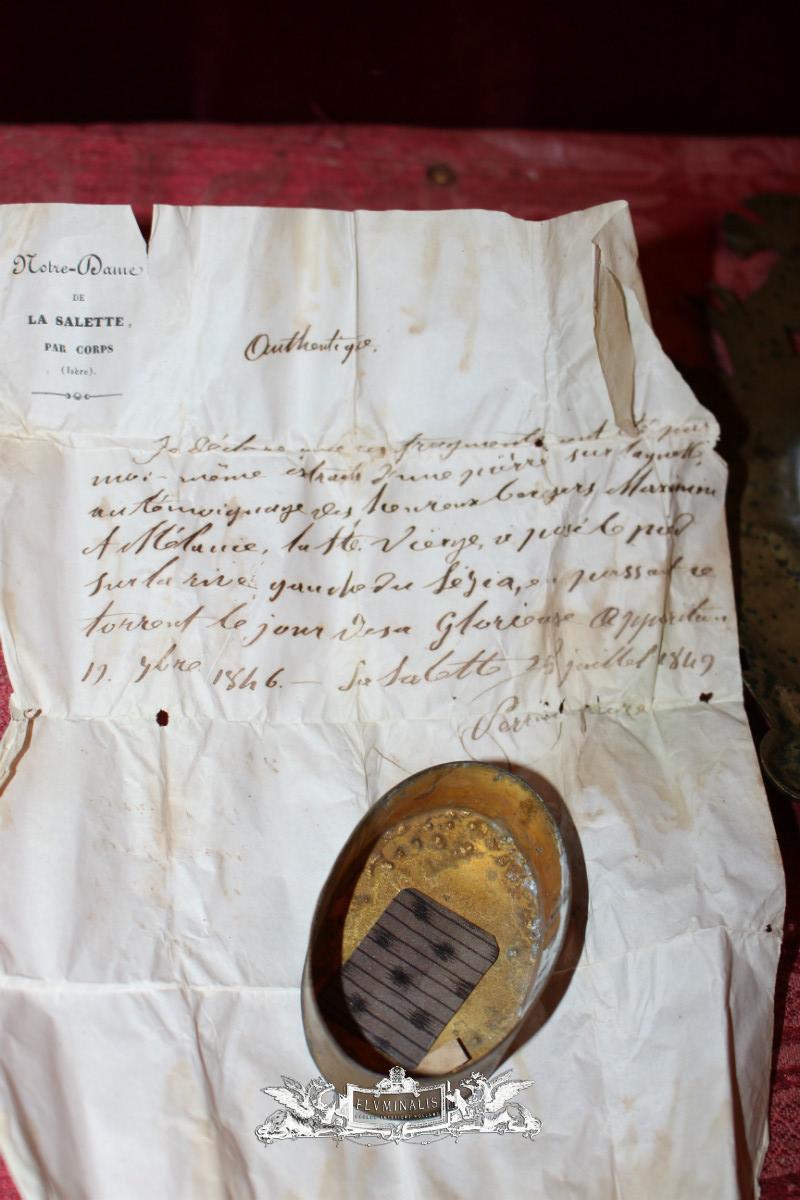 Notre-Dame
DE
LA SALETTE,
PAR CORPS
(Isère).
Authentique.
Je déclare que ces fragments ont été par
moi-même extraits d'une pierre sur laquelle,
au témoignage des heureux bergers Maximin
& Mélanie, la Ste. Vierge, a posé le pied
sur la rive gauche du Sézia, en passant ce
torrent le jour de sa Glorieuse Apparition
19. 7bre 1846. — La Salette 25 juillet 1849
FLVMINALIS